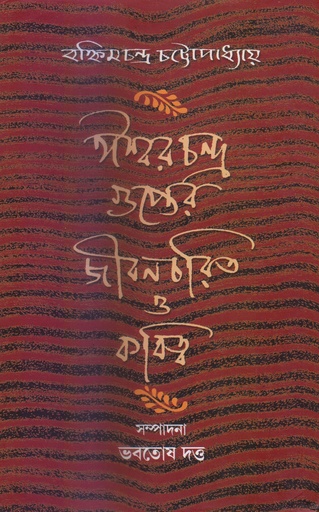 বঙ্কিমচন্দ্র চট্টোপাধ্যায়
ঈশ্বরচন্দ্র
গুপ্তের
জীবনচরিত
ও
কবিত্ব
সম্পাদনা
ভবতোষ দত্ত